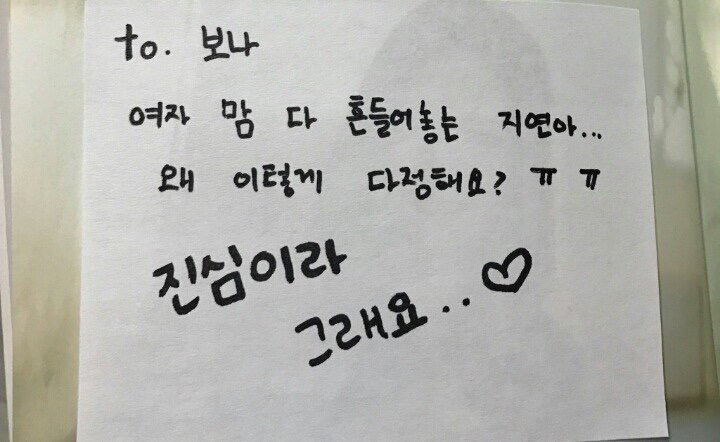 to. 보나
여자 맘 다 흔들어놓는 지연아...
왜 이렇게 다정해요? ㅠㅠ
진심이라
그래요..♡